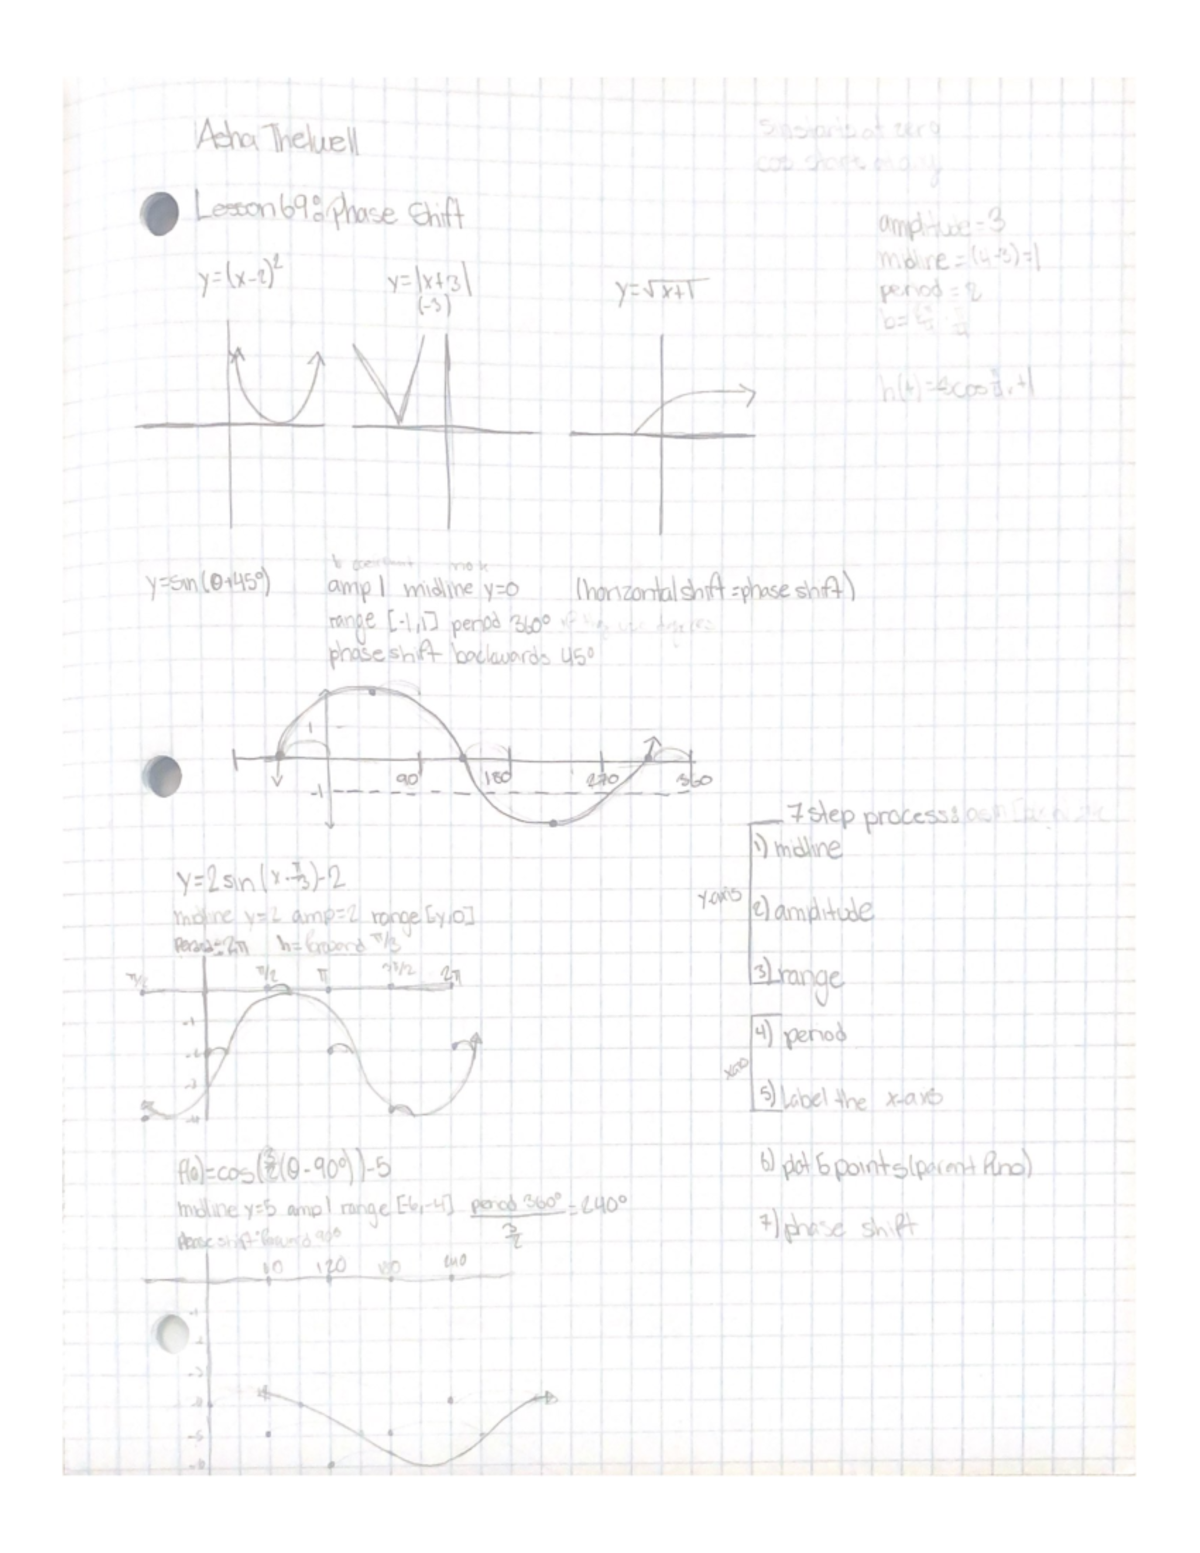 Asha Thelwell
Lesson 69: Phase Shift
y=(x-2)²
y=|x+3|
(-3)
y=√x+1
amplitude=3
midline=(4-3)=1
period=2
b=
h(t)=
y=sin(θ+45°)
amp 1 midline y=0 (horizontal shift=phase shift)
range [-1,1] period 360° if
phase shift backwards 45°
1
90 180 270 360
-1
7 step process:
1) midline
y axis
2) amplitude
3) range
4) period
x axis
5) Label the x-axis
6) plot 5 points (parent func)
7) phase shift
y=2sin(x-π/3)-2
midline y=2 amp=2 range[y,0]
Period=2π h=forward π/3
π/2 π/2 π 3π/2 2π
-1
f(θ)=cos(3/2(θ-90°))-5
midline y=5 amp 1 range [-6,-4] period 360°/(3/2)=240°
Phase shift forward 90°
60 120 180 240
-1